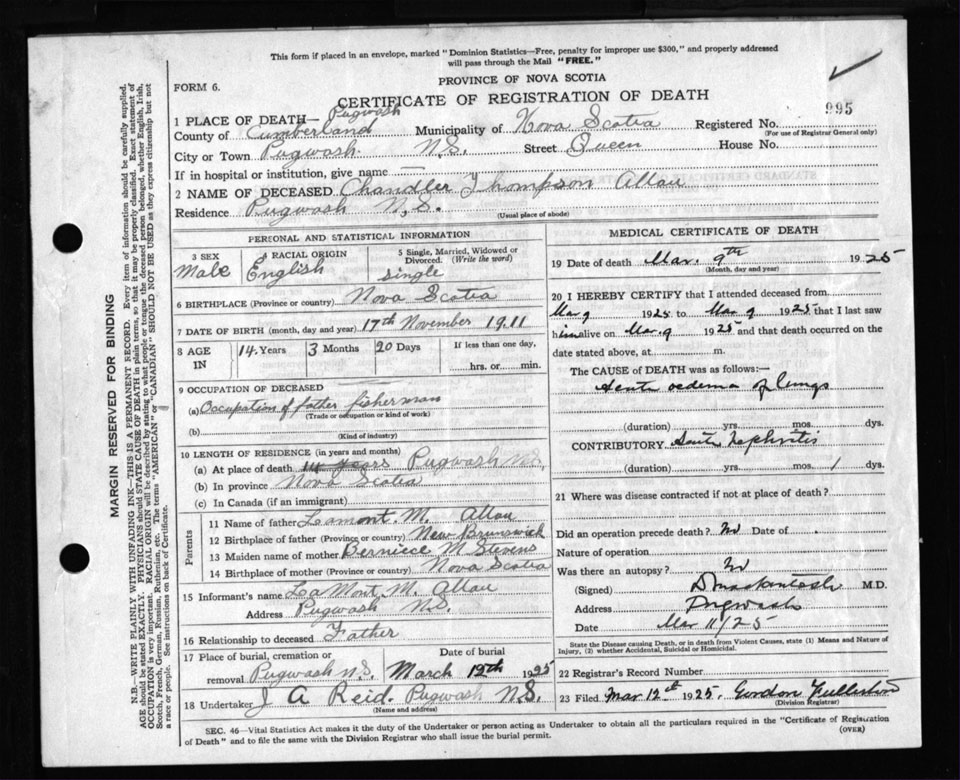 This form if placed in an envelope, marked "Dominion Statistics—Free, penalty for improper use $300," and properly addressed
will pass through the Mail "FREE."
FORM 6.
PROVINCE OF NOVA SCOTIA
CERTIFICATE OF REGISTRATION OF DEATH
995
1 PLACE OF DEATH— Pugwash
County of Cumberland Municipality of Nova Scotia Registered No.
(For use of Registrar General only)
City or Town Pugwash N.S. Street Queen House No.
If in hospital or institution, give name
2 NAME OF DECEASED Chandler Thompson Allau
Residence Pugwash N.S.
(Usual place of abode)
PERSONAL AND STATISTICAL INFORMATION
3 SEX Male
4 RACIAL ORIGIN English
5 Single, Married, Widowed or Divorced. (Write the word) single
6 BIRTHPLACE (Province or country) Nova Scotia
7 DATE OF BIRTH (month, day and year) 17th November 1911
8 AGE IN 14 Years 3 Months 20 Days If less than one day, hrs. or min.
9 OCCUPATION OF DECEASED
(a) Occupation of father fisherman
(Trade or occupation or kind of work)
(b)
(Kind of industry)
10 LENGTH OF RESIDENCE (in years and months)
(a) At place of death 14 years Pugwash N.S.
(b) In province Nova Scotia
(c) In Canada (if an immigrant)
Parents
11 Name of father Lamont M. Allau
12 Birthplace of father (Province or country) New Brunswick
13 Maiden name of mother Berniece M Stevens
14 Birthplace of mother (Province or country) Nova Scotia
15 Informant's name LaMont M. Allau
Address Pugwash N.S.
16 Relationship to deceased Father
17 Place of burial, cremation or removal Pugwash N.S. Date of burial March 12th 1925
18 Undertaker J A Reid. Pugwash N.S.
(Name and address)
MEDICAL CERTIFICATE OF DEATH
19 Date of death Mar. 9th 1925
(Month, day and year)
20 I HEREBY CERTIFY that I attended deceased from
Mar 9 1925 to Mar 9 1925 that I last saw
him alive on Mar. 9 1925 and that death occurred on the
date stated above, at m.
The CAUSE of DEATH was as follows:—
Acute oedema of lungs
(duration) yrs. mos. dys.
CONTRIBUTORY Acute nephritis
(duration) yrs. mos. 1 dys.
21 Where was disease contracted if not at place of death?
Did an operation precede death? No Date of
Nature of operation
Was there an autopsy? No
(Signed) D Mackintosh M.D.
Address Pugwash
Date Mar 11/25
State the Disease causing Death, or in death from Violent Causes, state (1) Means and Nature of
Injury, (2) whether Accidental, Suicidal or Homicidal.
22 Registrar's Record Number
23 Filed Mar 12th 1925. Gordon Fullerton
(Division Registrar)
SEC. 46—Vital Statistics Act makes it the duty of the Undertaker or person acting as Undertaker to obtain all the particulars required in the "Certificate of Registration
of Death" and to file the same with the Division Registrar who shall issue the burial permit.
(OVER)
MARGIN RESERVED FOR BINDING
N.B.—WRITE PLAINLY WITH UNFADING INK—THIS IS A PERMANENT RECORD. Every item of information should be carefully supplied.
AGE should be stated EXACTLY. PHYSICIANS should STATE CAUSE OF DEATH in plain terms, so that it may be properly classified. Exact statement of
OCCUPATION is very important. RACIAL ORIGIN will be described by stating to what people or tongue the deceased person belonged, whether English, Irish,
Scotch, French, German, Russian, Ruthenian, etc. The terms "AMERICAN" or "CANADIAN" SHOULD NOT BE USED as they express citizenship but not
a race or people. See instructions on back of Certificate.